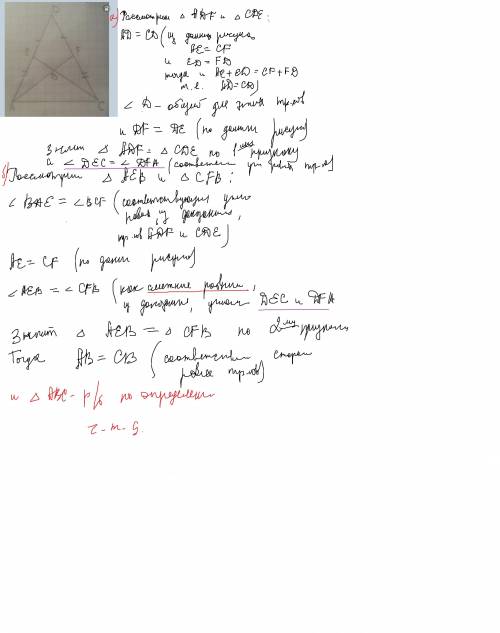 D
E
F
B
A
C
а) Рассмотрим △ ADF и △ CDE:
AD = CD (из данных рисунка
AE = CF
и ED = FD
тогда и AE + ED = CF + FD
т.е. AD = CD)
∠ D - общий для этих тр-ов
и DF = DE (по данным рисунка)
Значит △ ADF = △ CDE по 1 признаку
и ∠ DEC = ∠ DFA (соответствен
б) Рассмотрим △ AEB и △ CFB:
∠ BAE = ∠ BCF (соответствующие углы
равны, из доказан
тр-ов ADF и CDE)
AE = CF (по данным рисунка)
∠ AEB = ∠ CFB (как смежные равным,
из доказан, углам DEC и DFA
Значит △ AEB = △ CFB по 2му признаку
Тогда AB = CB (соответствен сторон
равных тр-ов)
и △ ABC - р/б по определению
ч-т-д.